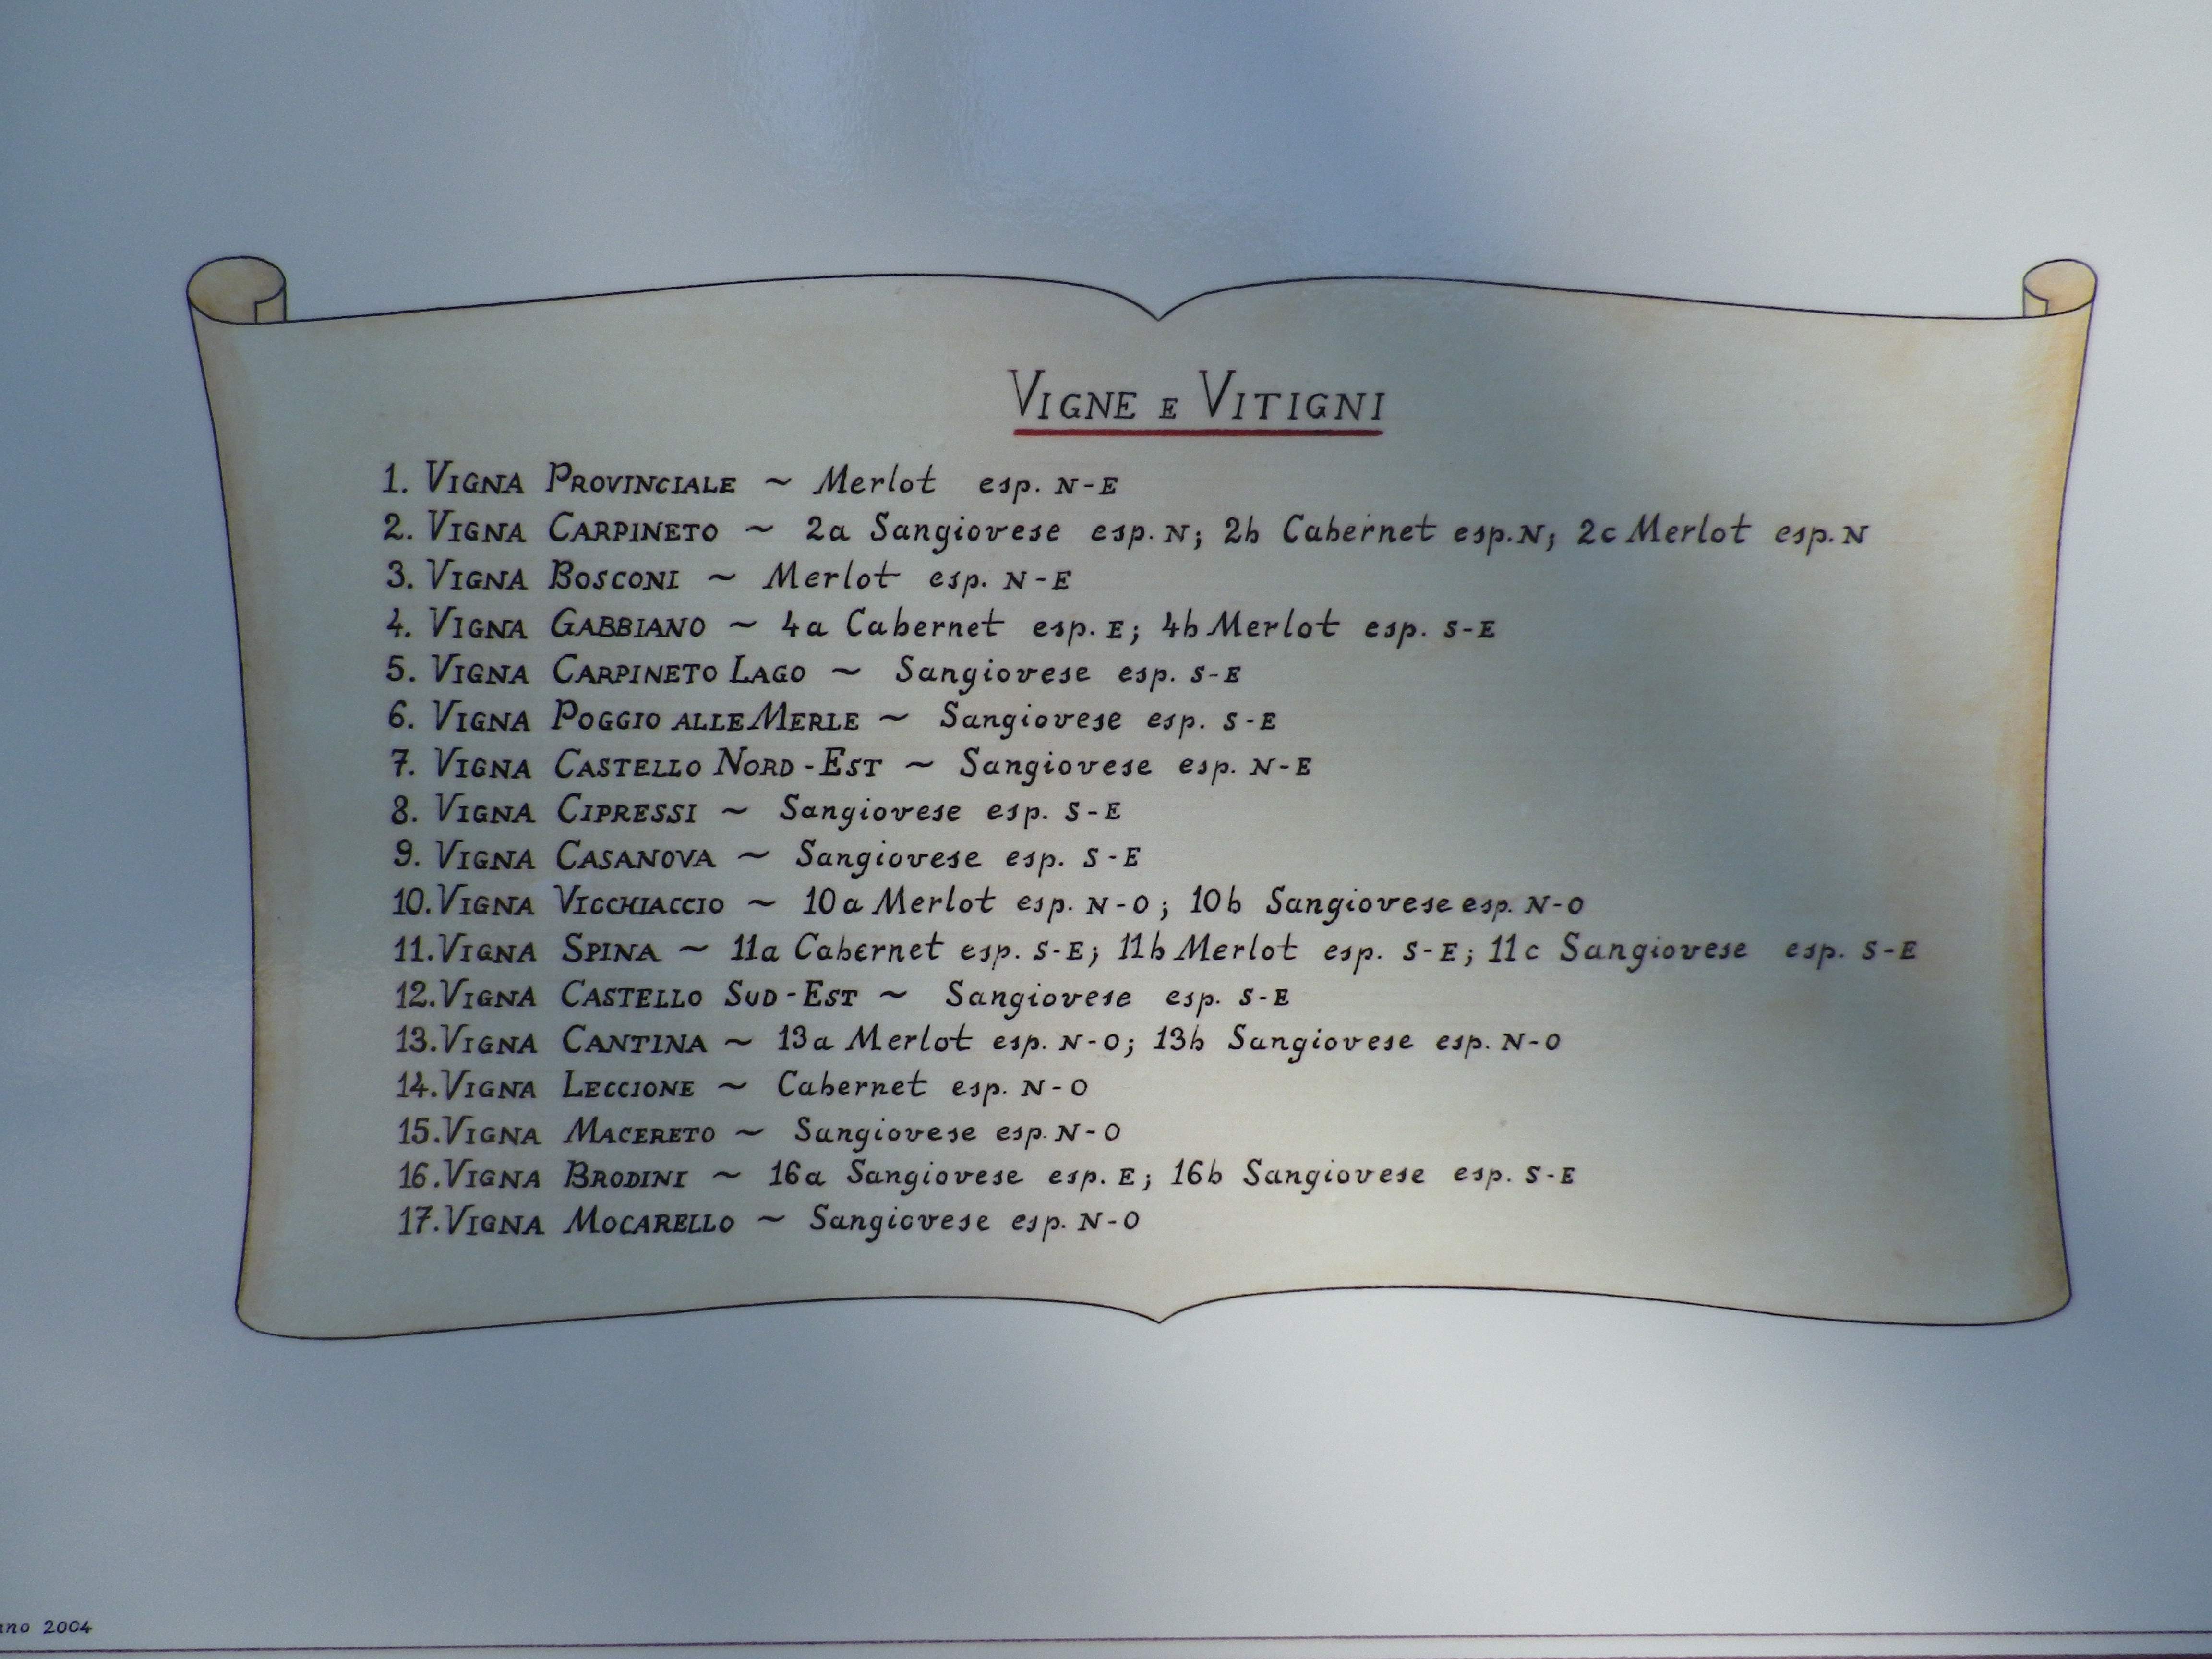 VIGNE E VITIGNI
1. VIGNA PROVINCIALE ~ Merlot esp. N-E
2. VIGNA CARPINETO ~ 2a Sangiovese esp. N; 2b Cabernet esp. N; 2c Merlot esp. N
3. VIGNA BOSCONI ~ Merlot esp. N-E
4. VIGNA GABBIANO ~ 4a Cabernet esp. E; 4b Merlot esp. S-E
5. VIGNA CARPINETO LAGO ~ Sangiovese esp. S-E
6. VIGNA POGGIO ALLE MERLE ~ Sangiovese esp. S-E
7. VIGNA CASTELLO NORD-EST ~ Sangiovese esp. N-E
8. VIGNA CIPRESSI ~ Sangiovese esp. S-E
9. VIGNA CASANOVA ~ Sangiovese esp. S-E
10. VIGNA VICCHIACCIO ~ 10a Merlot esp. N-O; 10b Sangiovese esp. N-O
11. VIGNA SPINA ~ 11a Cabernet esp. S-E; 11b Merlot esp. S-E; 11c Sangiovese esp. S-E
12. VIGNA CASTELLO SUD-EST ~ Sangiovese esp. S-E
13. VIGNA CANTINA ~ 13a Merlot esp. N-O; 13b Sangiovese esp. N-O
14. VIGNA LECCIONE ~ Cabernet esp. N-O
15. VIGNA MACERETO ~ Sangiovese esp. N-O
16. VIGNA BRODINI ~ 16a Sangiovese esp. E; 16b Sangiovese esp. S-E
17. VIGNA MOCARELLO ~ Sangiovese esp. N-O
2004